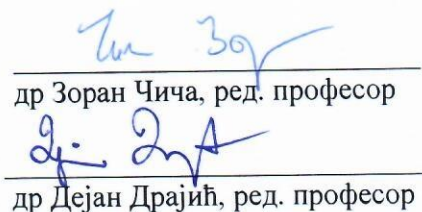 др Зоран Чича, ред. професор
др Дејан Драјић, ред. професор